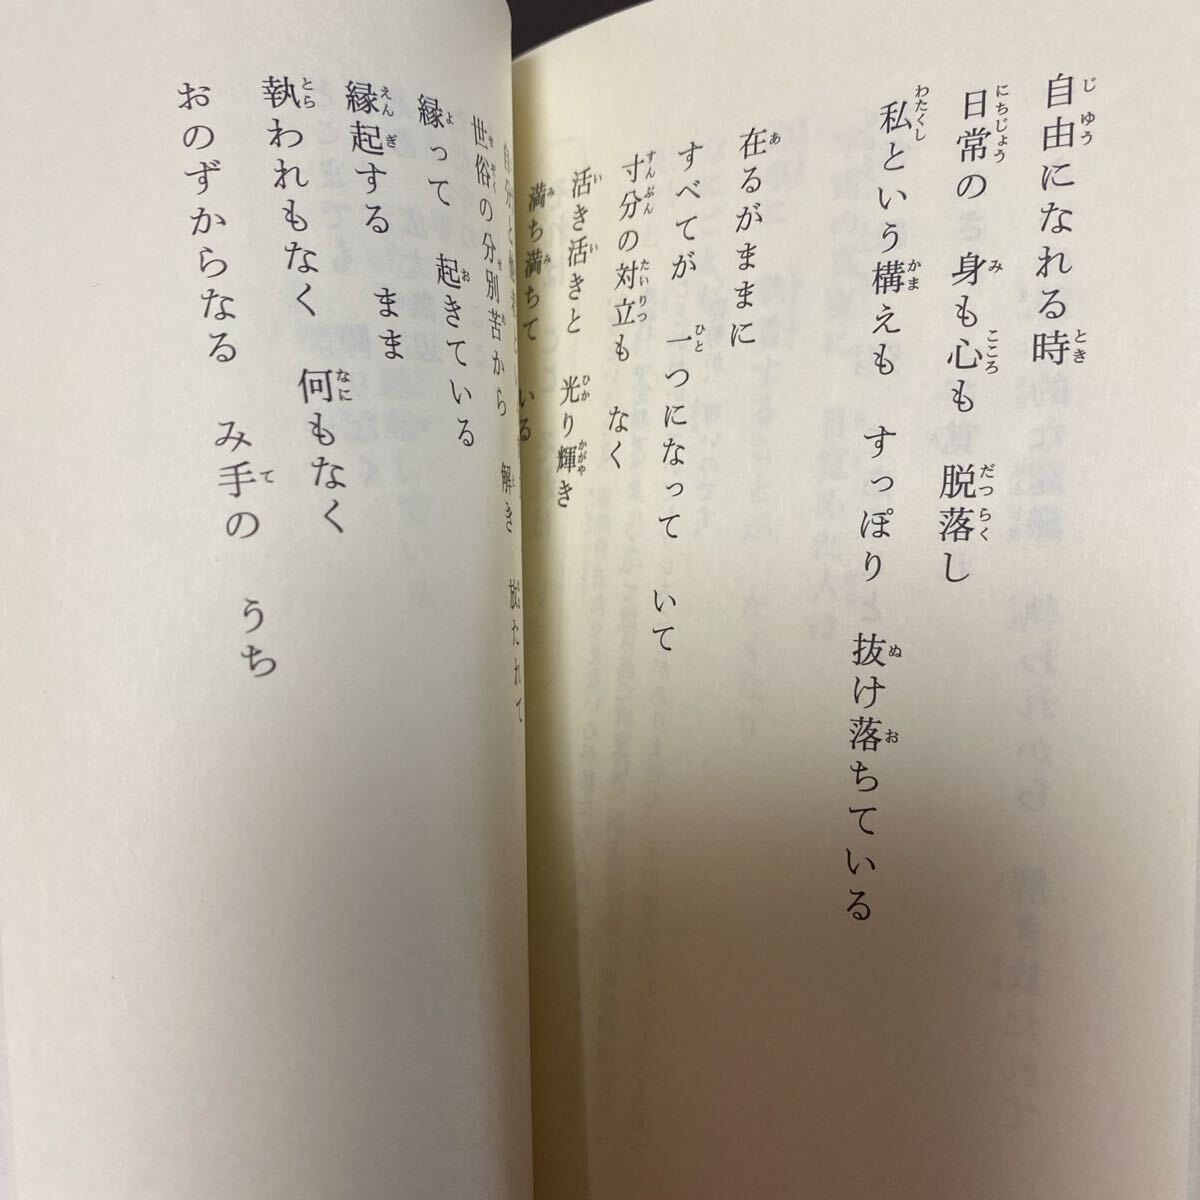 自由になれる時
日常の　身も心も　脱落し
私という構えも　すっぽり　抜け落ちている
在るがままに
すべてが　一つになって　いて
寸分の対立も　なく
活き活きと　光り輝き
満ち満ちて　いる
自分と
世俗の分別苦から　解き　放たれて
縁って　起きている
縁起する　まま
執われもなく　何もなく
おのずからなる　み手の　うち